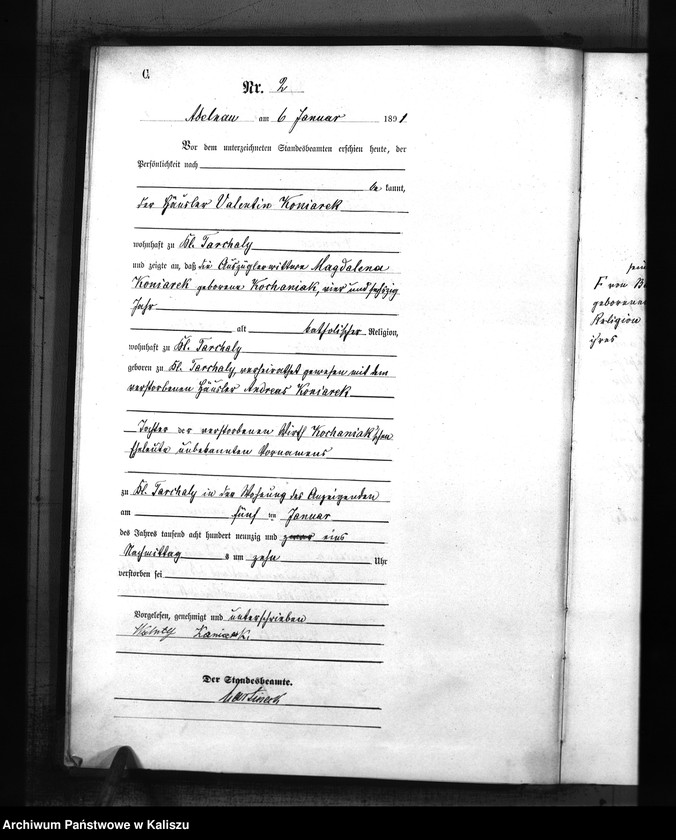 C.
Nr. 2
Adelnau am 6 Januar 1891
Vor dem unterzeichneten Standesbeamten erschien heute, der
Persönlichkeit nach
be kannt,
der Häusler Valentin Koniarek
wohnhaft zu Kl. Tarchaly
und zeigte an, daß die Auszüglerwittwe Magdalena
Koniarek geborene Kochaniak, vier und sechzig
Jahr
alt katholischer Religion,
wohnhaft zu Kl. Tarchaly
geboren zu Kl. Tarchaly, verheirathet gewesen mit dem
verstorbenen Häusler Andreas Koniarek
Tochter der verstorbenen Wirth Kochaniak'schen
Eheleute unbekannten Vornamens
zu Kl. Tarchaly in der Wohnung des Anzeigenden
am fünf ten Januar
des Jahres tausend acht hundert neunzig und eins
Nachmittag s um zehn Uhr
verstorben sei
Vorgelesen, genehmigt und unterschrieben
Der Standesbeamte.
F von
geborenen
Religion
ihres
Archiwum Państwowe w Kaliszu